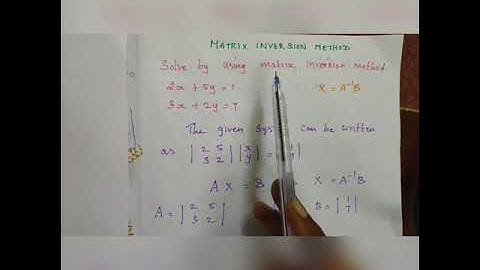 MATRIX INVERSION METHOD
Solve by using matrix inversion method
2x + 5y =
3x + 2y = 7
X = A⁻¹B
The given sys can be written
as | 2 5 | | x | = | 1 |
| 3 2 | | y | | 7 |
A X = B X = A⁻¹B
A = | 2 5 | B = | 1 |
| 3 2 | | 7 |